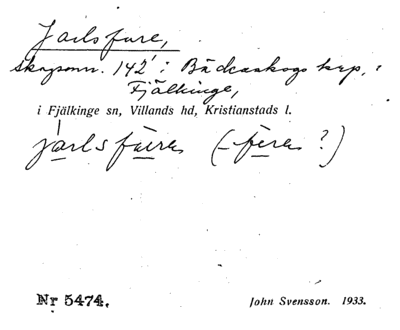 Jarlsfure,
skogsomr. 142' i Bäckaskogs krp, i
Fjälkinge,
i Fjälkinge sn, Villands hd, Kristianstads l.
jarlsfura (-fera ?)
Nr 5474. John Svensson. 1933.